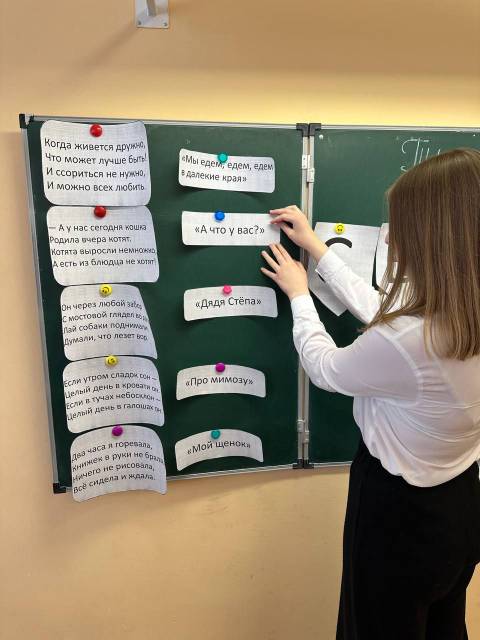 Когда живется дружно,
Что может лучше быть!
И ссориться не нужно,
И можно всех любить.
«Мы едем, едем, едем
в далекие края»
— А у нас сегодня кошка
Родила вчера котят.
Котята выросли немножко,
А есть из блюдца не хотят!
«А что у вас?»
Он через любой забор
С мостовой глядел во
Лай собаки поднимали,
Думали, что лезет вор.
«Дядя Стёпа»
Если утром сладок сон —
Целый день в кровати он
Если в тучах небосклон —
Целый день в галошах он.
«Про мимозу»
Два часа я горевала,
Книжек в руки не брала
Ничего не рисовала,
Всё сидела и ждала.
«Мой щенок»
С